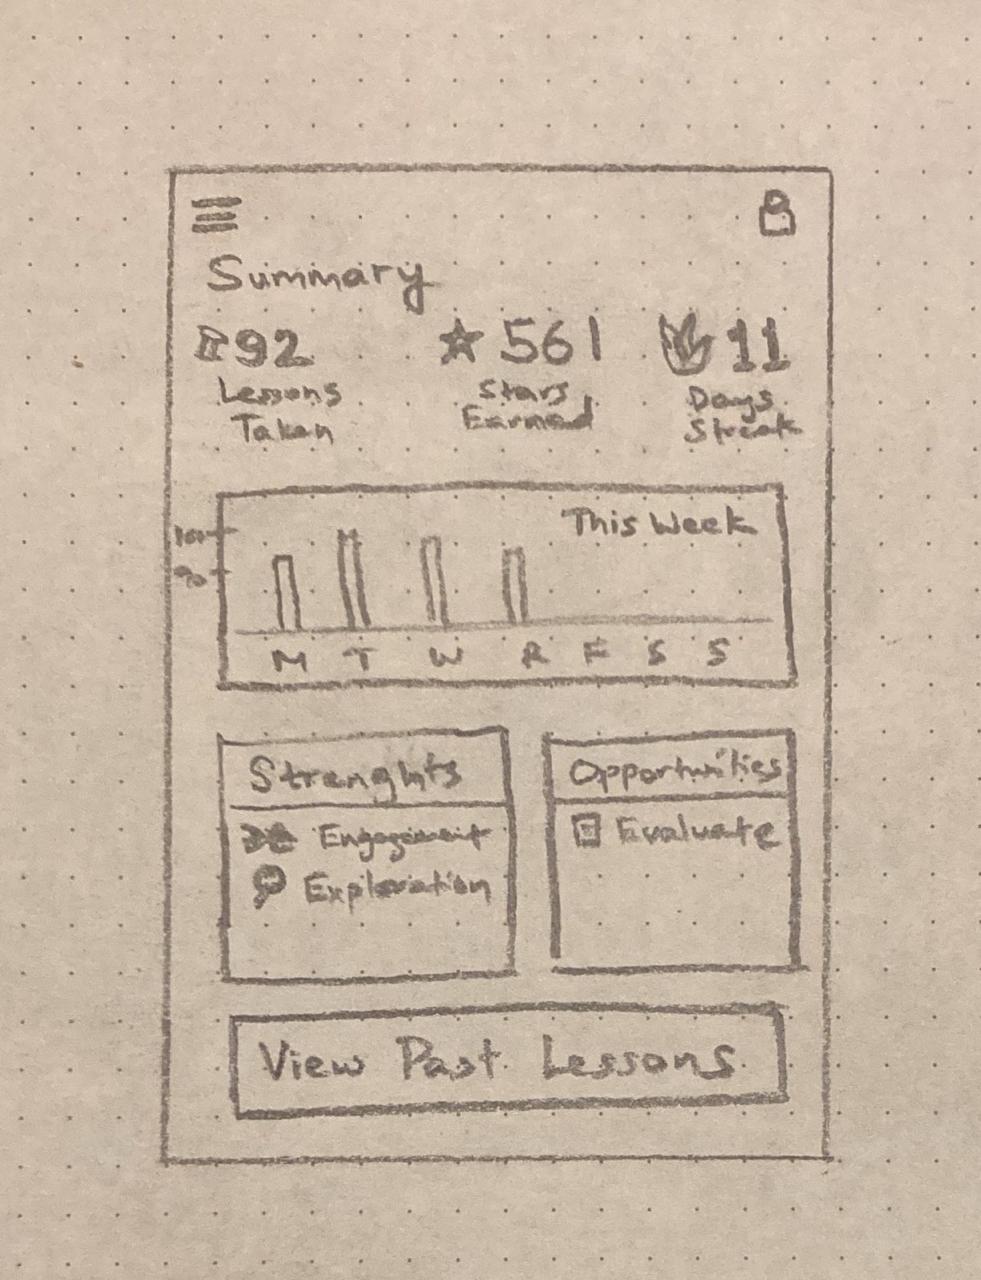 Summary
92
Lessons
Taken
561
Stars
Earned
11
Days
Streak
This Week
100
90
M T W R F S S
Strenghts
Engagement
Exploration
Opportunities
Evaluate
View Past Lessons